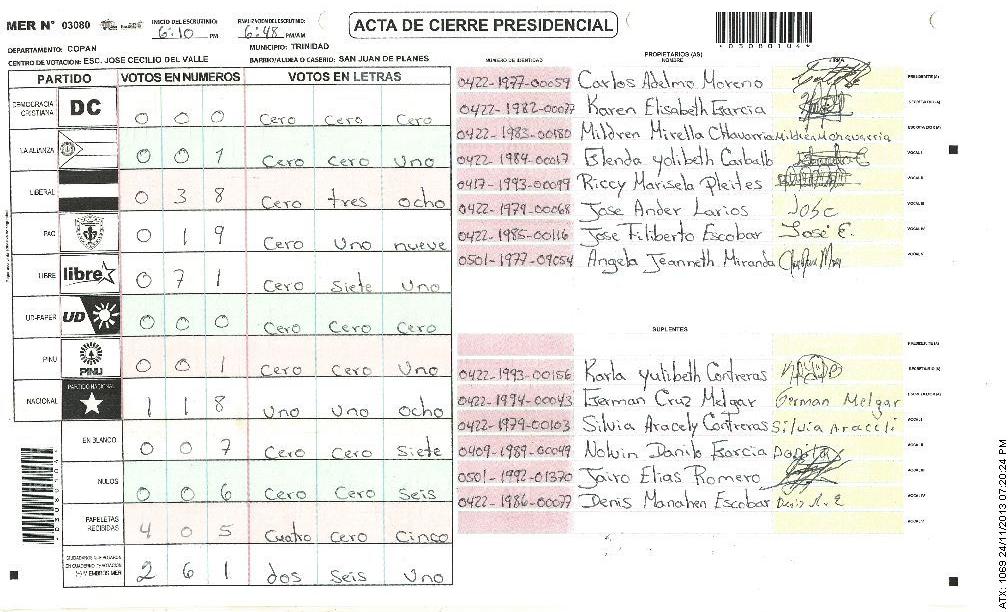 MER N° 03080
INICIO DEL ESCRUTINIO: 6:10 PM
FINALIZACION ESCRUTINIO: 6:48 PM/AM
ACTA DE CIERRE PRESIDENCIAL
*03080104*
DEPARTAMENTO: COPAN
MUNICIPIO: TRINIDAD
CENTRO DE VOTACION: ESC. JOSE CECILIO DEL VALLE
BARRIO/ALDEA O CASERIO: SAN JUAN DE PLANES
PARTIDO VOTOS EN NUMEROS VOTOS EN LETRAS
DEMOCRACIA CRISTIANA DC 0 0 0 Cero Cero Cero
LA ALIANZA 0 0 1 Cero Cero Uno
LIBERAL 0 3 8 Cero tres ocho
PAC 0 1 9 Cero Uno nueve
LIBRE libre 0 7 1 Cero Siete Uno
UD-FAPER UD 0 0 0 Cero Cero Cero
PINU PINU 0 0 1 Cero Cero Uno
NACIONAL PARTIDO NACIONAL 1 1 8 Uno Uno Ocho
EN BLANCO 0 0 7 Cero Cero Siete
NULOS 0 0 6 Cero Cero Seis
PAPELETAS RECIBIDAS 4 0 5 Cuatro Cero Cinco
CIUDADANOS QUE VOTARON EN CUADERNO DE VOTACION (+) MIEMBROS MER 2 6 1 dos Seis Uno
PROPIETARIOS (AS)
NUMERO DE IDENTIDAD NOMBRE FIRMA
0422-1977-00059 Carlos Adelmo Moreno PRESIDENTE (A)
0422-1982-00077 Karen Elisabeth Garcia SECRETARIO (A)
0422-1983-00180 Mildren Mirella Chavarria Mildren M chavarria ESCRUTADOR (A)
0422-1984-00017 Glenda yolibeth Carballo VOCAL I
0417-1993-00099 Riccy Marisela Pleites VOCAL II
0422-1979-00068 Jose Ander Larios Jose VOCAL III
0422-1985-00116 Jose Filiberto Escobar José E. VOCAL IV
0501-1977-09054 Angela Jeanneth Miranda VOCAL V
SUPLENTES
PRESIDENTE (A)
0422-1993-00156 Karla yulibeth Contreras SECRETARIO (A)
0422-1994-00043 German Cruz Melgar German Melgar ESCRUTADOR (A)
0422-1979-00103 Silvia Aracely Contreras Silvia Araceli VOCAL I
0409-1989-00099 Nolvin Danilo Garcia Danilo VOCAL II
0501-1992-01370 Jairo Elias Romero VOCAL III
0422-1986-00077 Denis Manahen Escobar Denis M. E VOCAL IV
VOCAL V
ATX: 1069 24/11/2013 07:20:24 PM